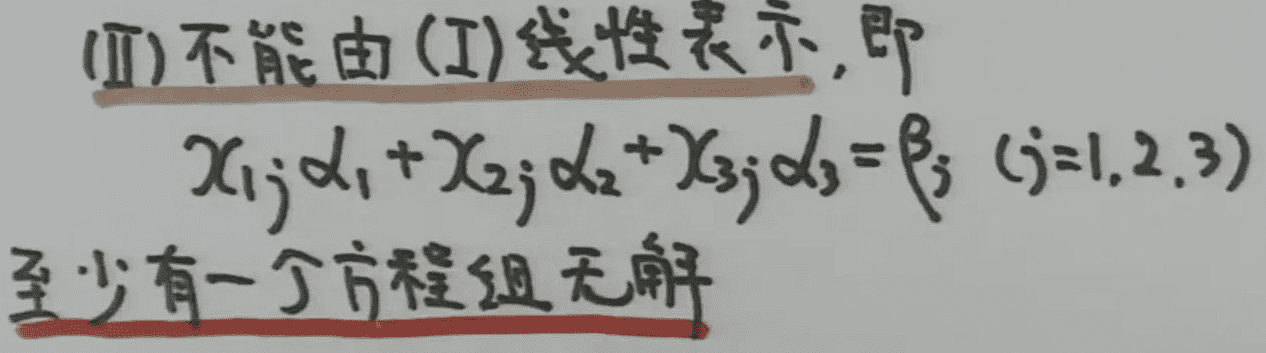 (Ⅱ)不能由(Ⅰ)线性表示,即
x₁ⱼα₁+x₂ⱼα₂+x₃ⱼα₃=βⱼ (j=1.2.3)
至少有一个方程组无解